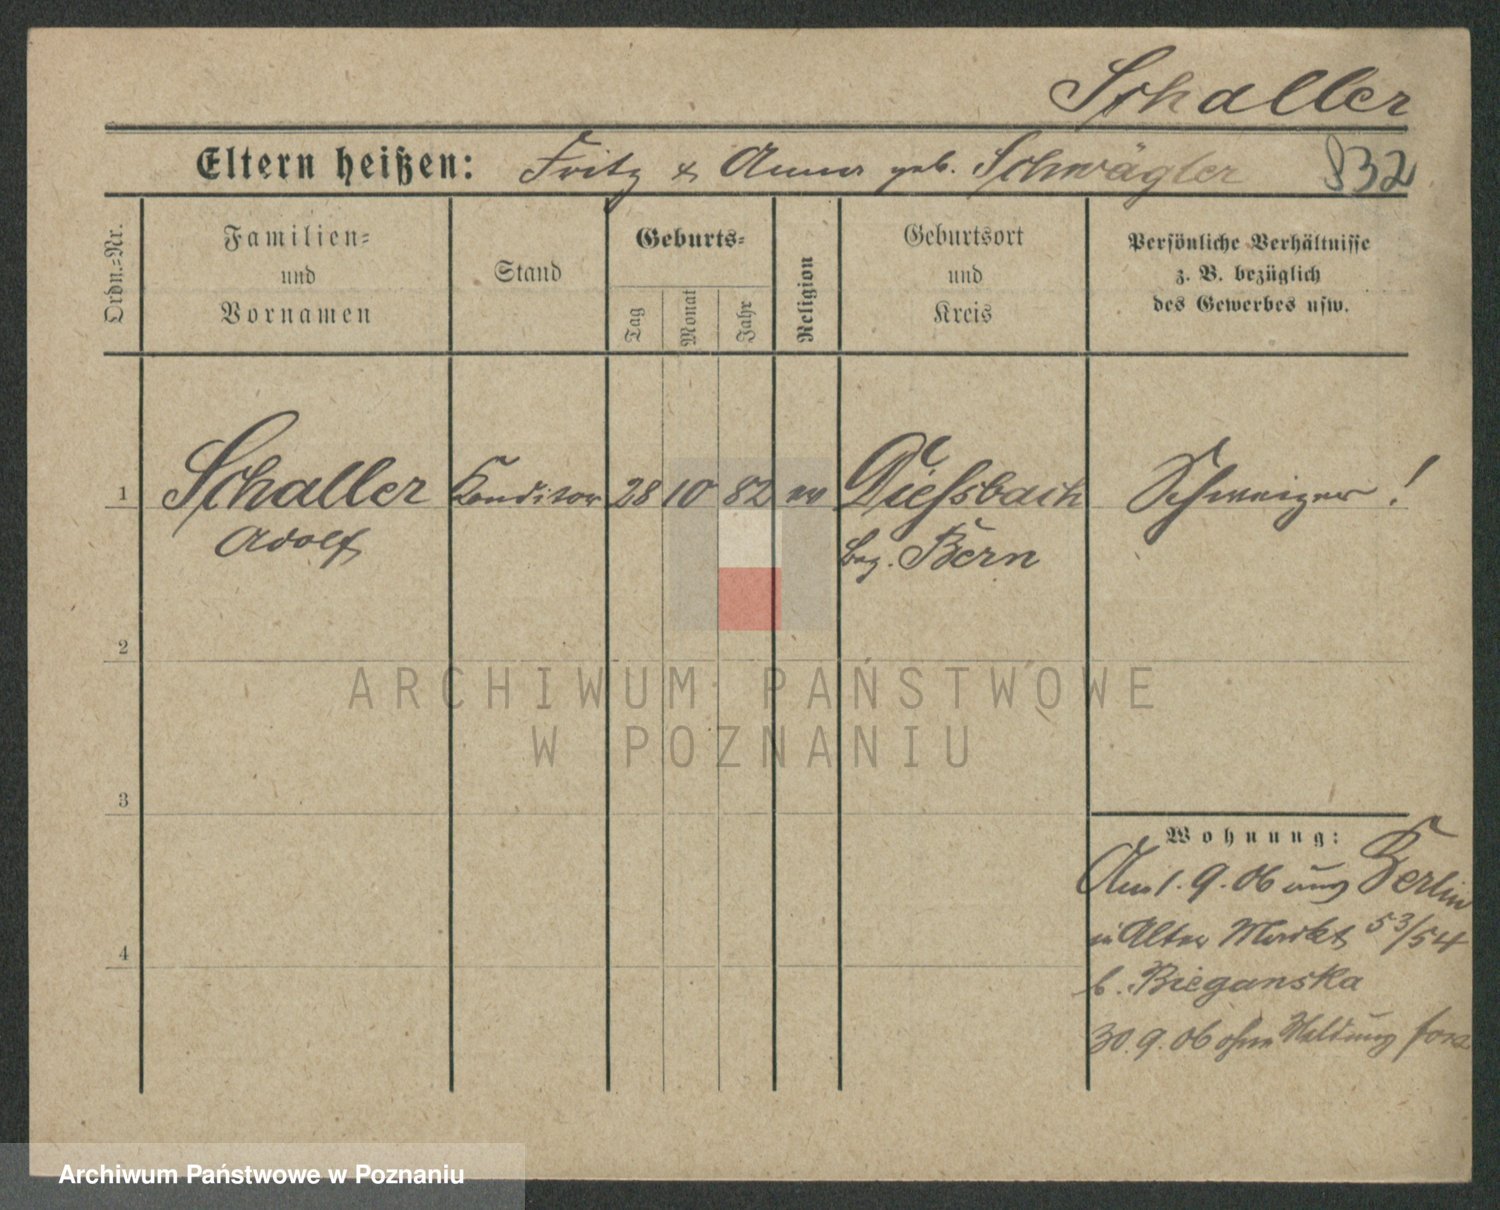 Schaller
Eltern heißen: Fritz & Anna geb. Schwägler 832
Ordn.-Nr.
Familien-
und
Vornamen
Stand
Geburts-
Tag
Monat
Jahr
Religion
Geburtsort
und
Kreis
Persönliche Verhältnisse
z. B. bezüglich
des Gewerbes usw.
1 Schaller Konditor 28 10 82 ev Dießbach Schweizer!
Adolf Bez. Bern
2
3
4
Wohnung:
Am 1.9.06 aus Berlin
in Alter Markt 53/54
b. Bieganska
30.9.06 ohne Meldung fort
ARCHIWUM PAŃSTWOWE
W POZNANIU
Archiwum Państwowe w Poznaniu